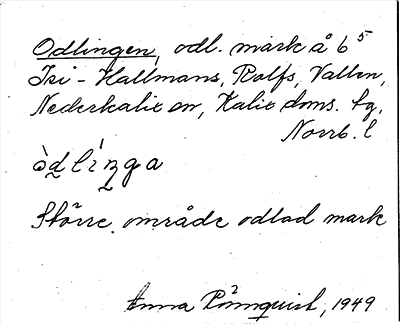 Odlingen, odl. mark å b 5
Isi-Hallmans, Rolfs, Vallen,
Nederkalix sn, Kalix doms. lg,
Norrb. l
òdlı́nga
Större område odlad mark
Anna Rönnquist, 1949